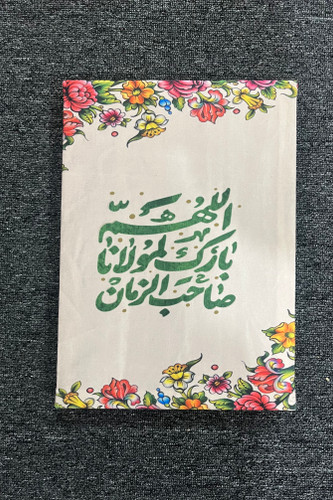 اللهم
بارك لمولانا
صاحب الزمان